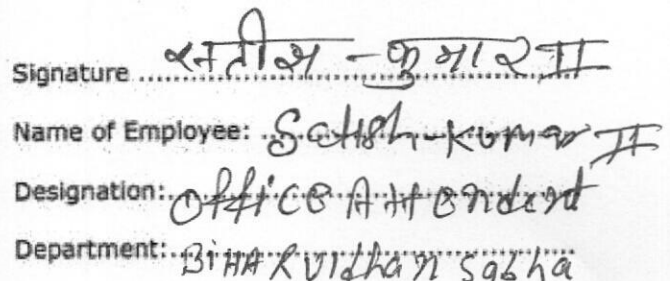 Signature सतीश - कुमार II
Name of Employee: Satish-Kumar II
Designation: Office Attendent
Department: BiHAR Vidhan Sabha